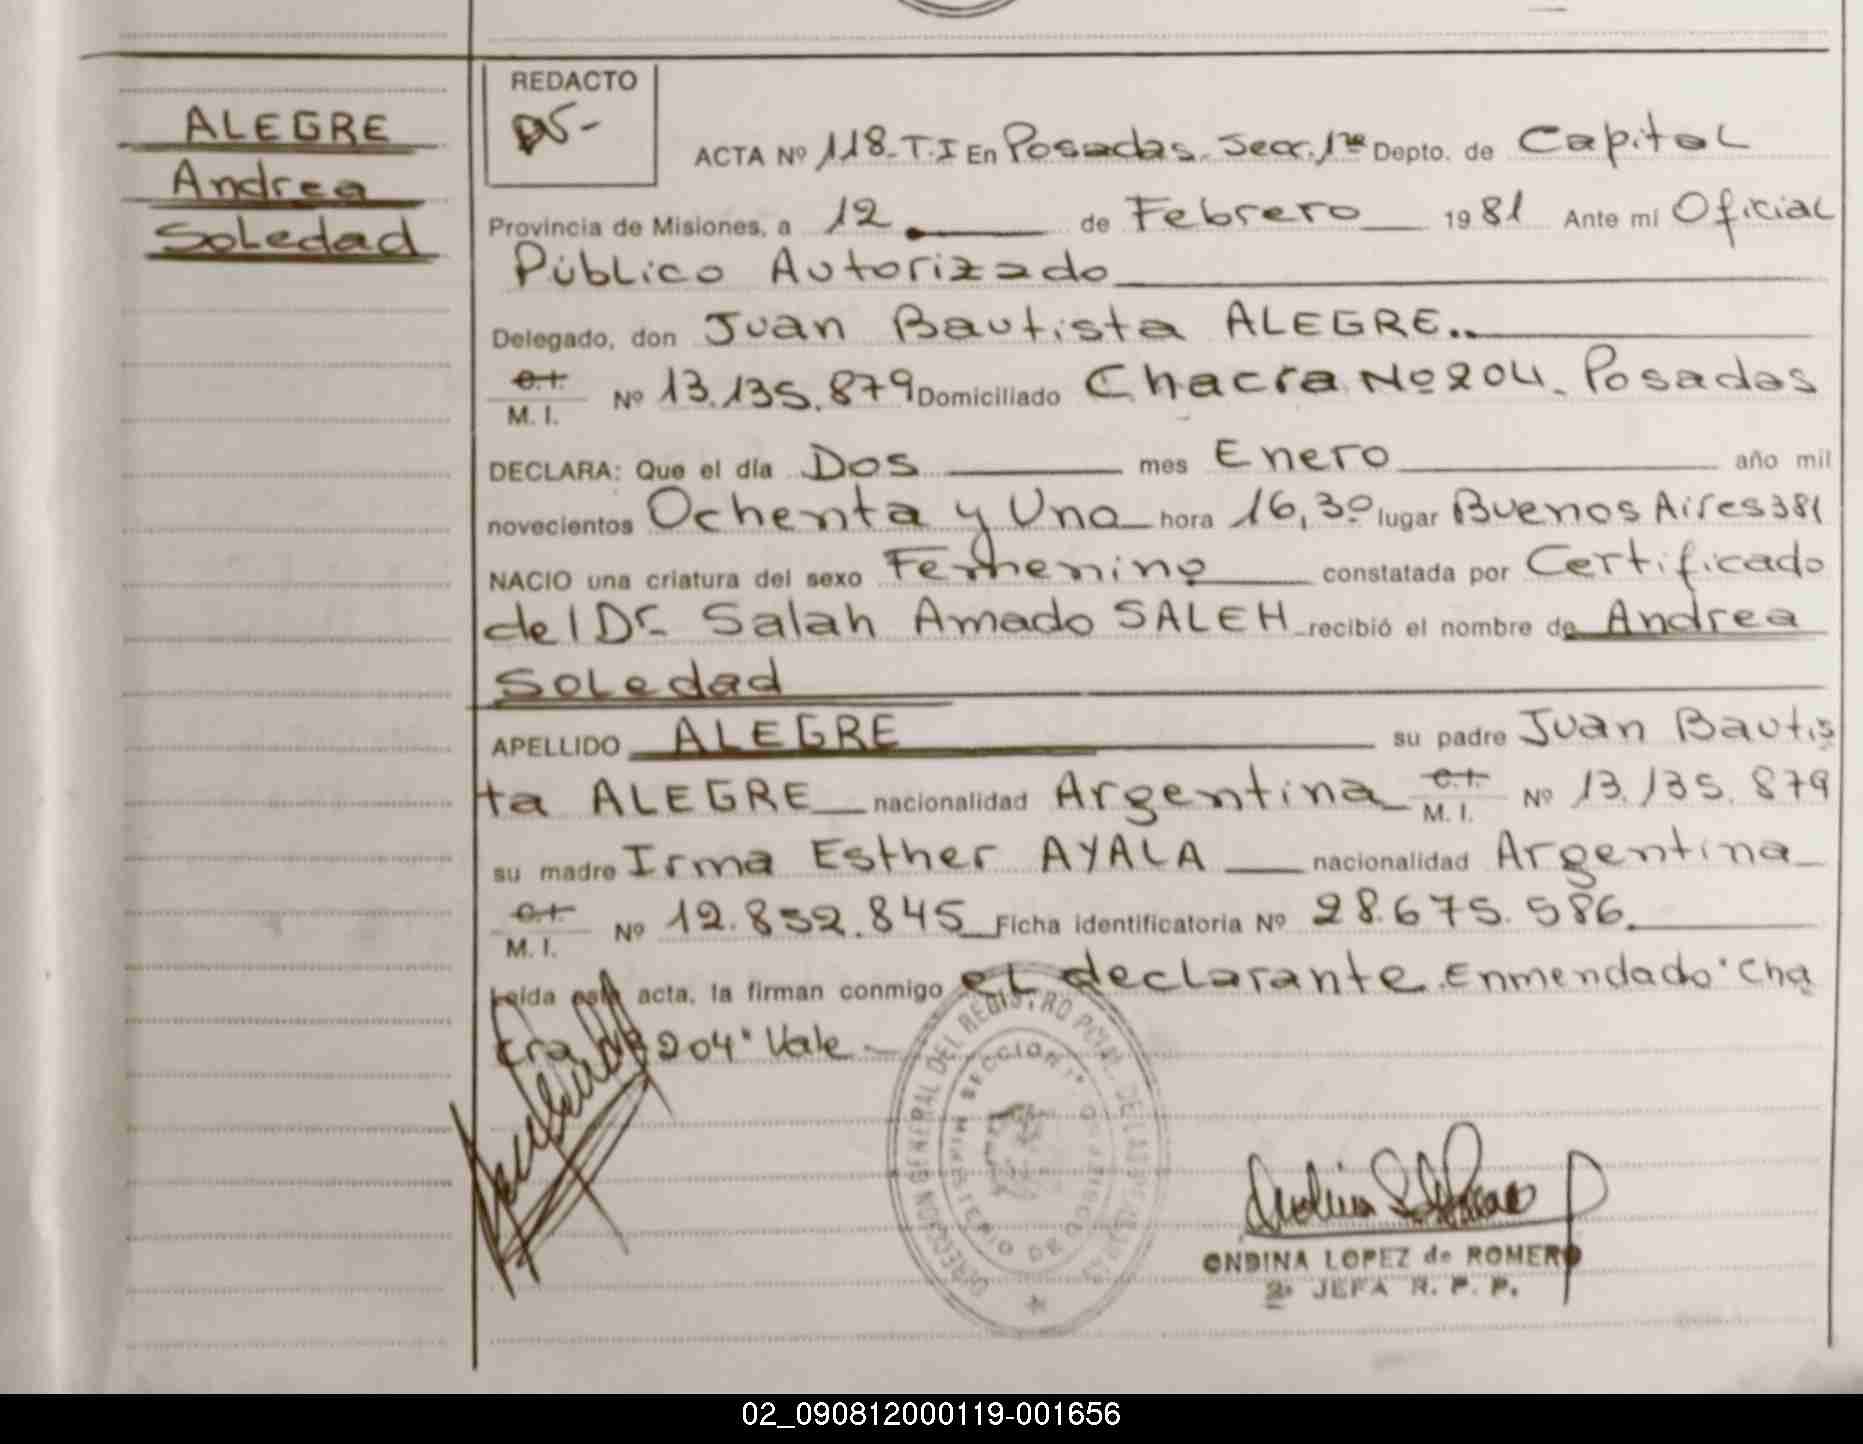 ALEGRE
Andrea
Soledad
REDACTO
ACTA Nº 118-T.I En Posadas. Secc. 1ra Depto. de Capital
Provincia de Misiones, a 12 de Febrero 1981 Ante mí Oficial
Público Autorizado
Delegado, don Juan Bautista ALEGRE..
C.I. M. I. Nº 13.135.879 Domiciliado Chacra Nº 204. Posadas
DECLARA: Que el día Dos mes Enero año mil
novecientos Ochenta y Uno hora 16,30 lugar Buenos Aires 381
NACIO una criatura del sexo Femenino constatada por Certificado
del Dr. Salah Amado SALEH recibió el nombre de Andrea
Soledad
APELLIDO ALEGRE su padre Juan Bautis
ta ALEGRE nacionalidad Argentina C.I. M. I. Nº 13.135.879
su madre Irma Esther AYALA nacionalidad Argentina
C.I. M. I. Nº 12.852.845 Ficha identificatoria Nº 28.675.586.
Leída esta acta, la firman conmigo el declarante. Enmendado "Cha
cra Nº 204" Vale
DIRECCION GENERAL DEL REGISTRO PCIAL. DE LAS PERSONAS
SECCION 1ª
MINISTERIO DE GOBIERNO
ONDINA LOPEZ de ROMERO
2ª JEFA R. P. P.
02_090812000119-001656